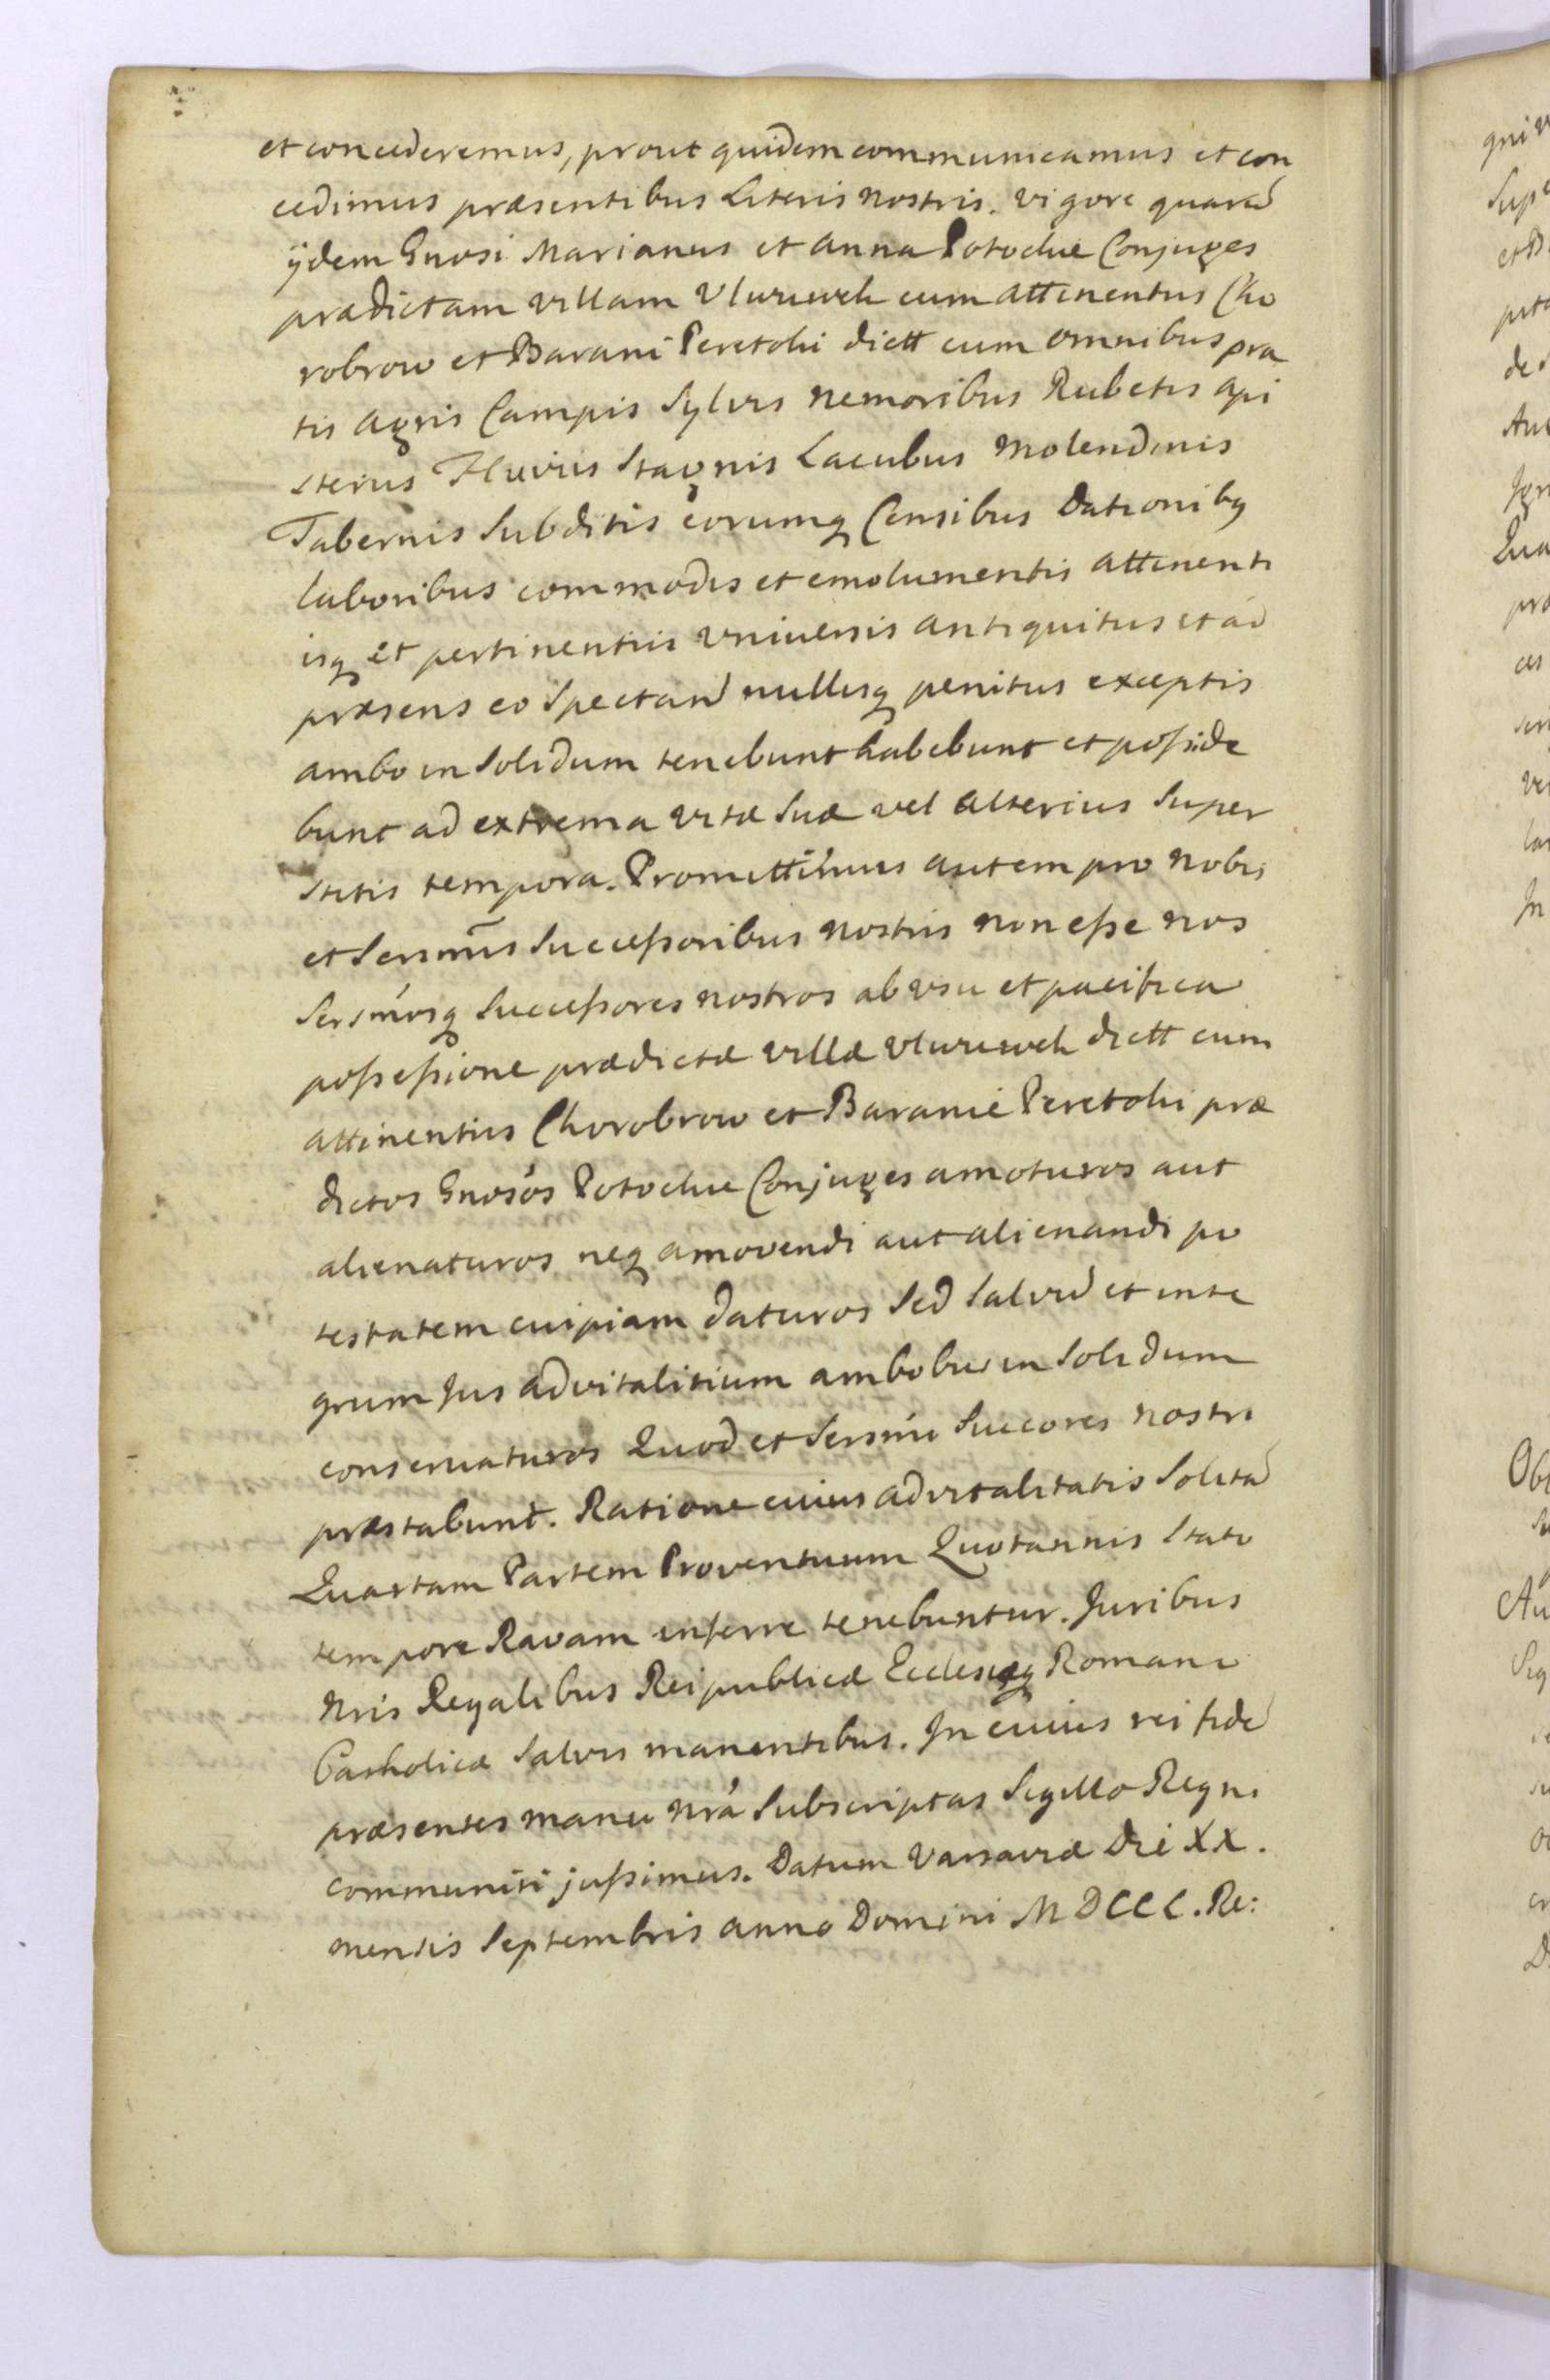 et concederemus, prout quidem communicamus et con
cedimus præsentibus Literis nostris. vigore quarū
ijdem Gnosi Marianus et Anna Potockie Conjuges
prædictam villam Vluruwek cum attinentiis Cho
robrow et Barani Peretoki dictt cum omnibus pra
tis agris Campis Sylvis nemoribus Rubetis api
sterius Fluviis Stagnis Lacubus Molendinis
Tabernis Subditis eorumq Censibus Dationibq
laboribus commodis et emolumentis attinenti
isq et pertinentiis vniuersis antiquitus et ad
præsens eo Spectand nullisq penitus exceptis
ambo in Solidum tenebunt habebunt et poßide
bunt ad extrema vitæ Suæ vel alterius Super
stitis tempora. Promittimus autem pro nobis
et Sermis Succeßoribus nostris non eße nos
Sermosq Succeßores nostros ab vsu et pacifica
poßeßione prædictæ villæ Vluruwek dictt cum
attinentiis Chorobrow et Baranie Peretoki præ
dictos Gnosos Potockie Conjuges amoturos aut
alienaturos neq amovendi aut alienandi po
testatem cuipiam daturos Sed Salvū et inte
grum Jus advitalitium ambobus in Solidum
conseruaturos Quod et Sermi Succores nostri
præstabunt. Ratione cuius advitalitatis Solitā
Quartam Partem Proventuum Quotannis Stato
tempore Ravam inferre tenebuntur. Juribus
nris Regalibus Reipublicæ Ecclesiæq Romanæ
Catholicæ Salvis manentibus. In cuius rei fidē
præsentes manu nrā Subscriptas Sigillo Regni
communiri jußimus. Datum Varsaviæ Die XX.
mensis Septembris anno Domini M DCCL. Re: